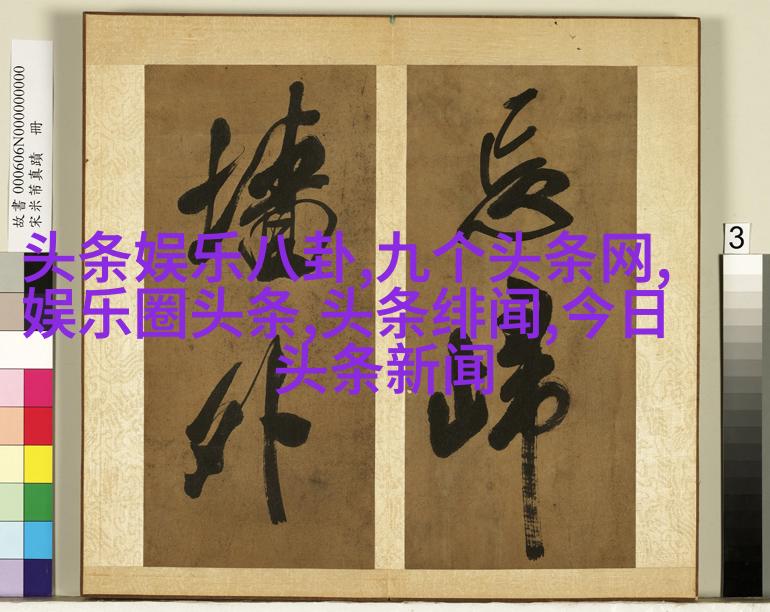 故書 000606N000000000
宋米芾真蹟 冊
忘歸
墻外
3
头条娱乐八卦,九个头条网,
娱乐圈头条,头条绯闻,今日
头条新闻